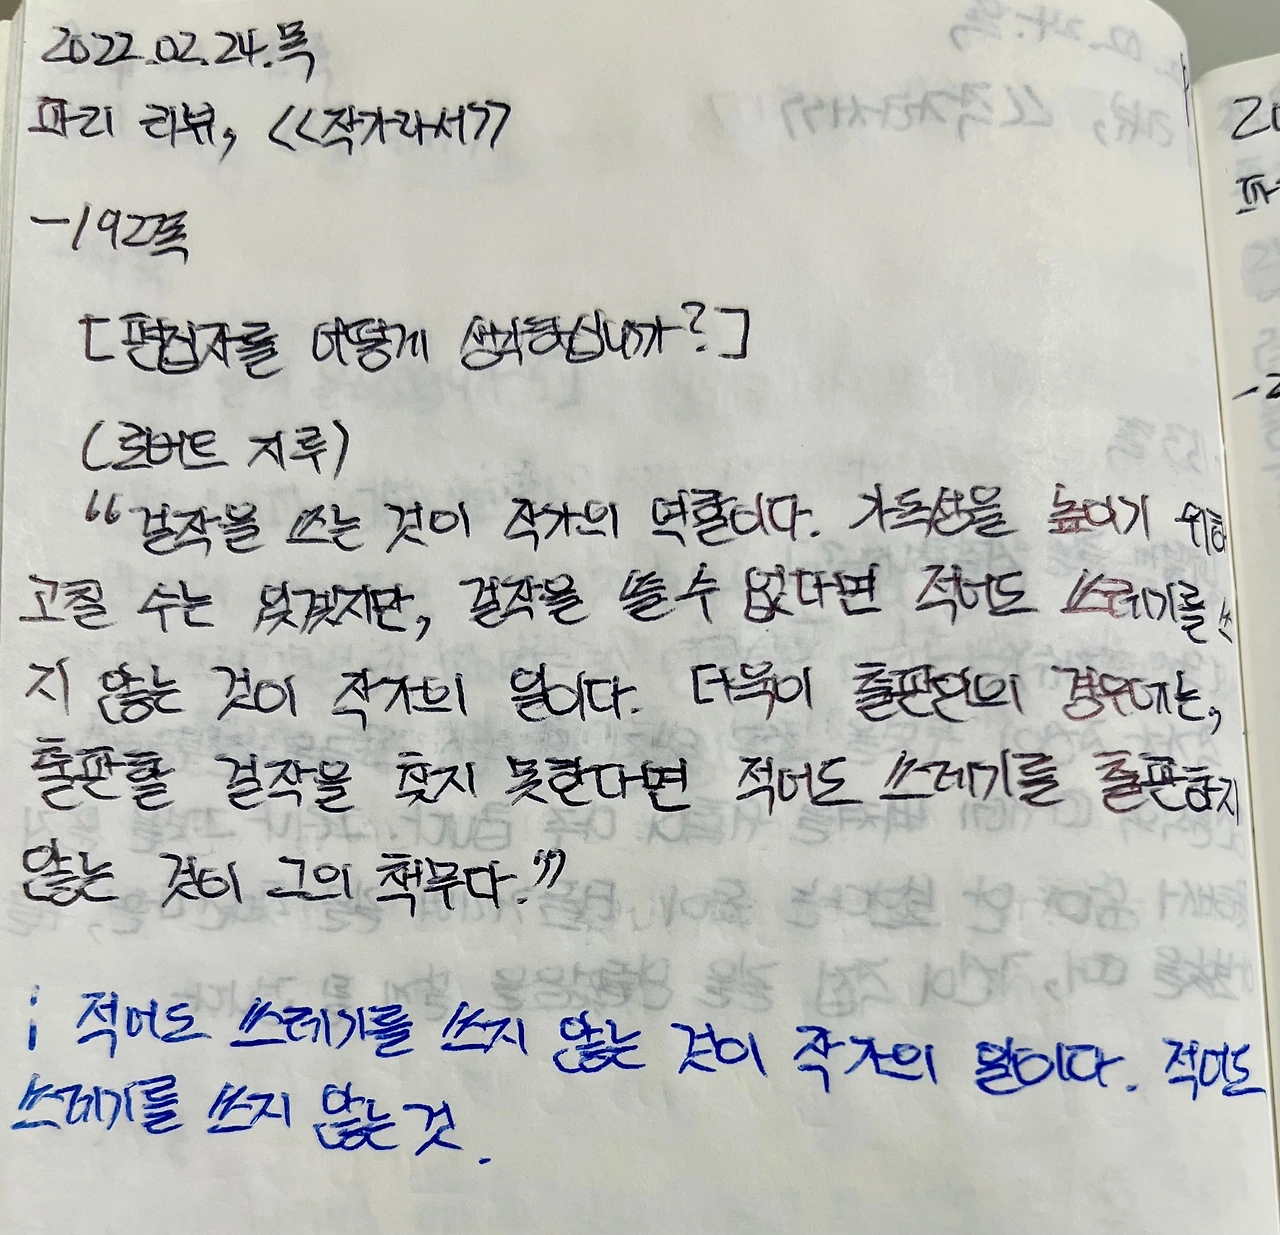 2022.02.24.목
파리 리뷰, <<작가라서>>
-192쪽
[편집자를 어떻게 생각하십니까?]
(로버트 지루)
“걸작을 쓰는 것이 작가의 역할이다. 가독성을 높이기 위해
고칠 수는 있겠지만, 걸작을 쓸 수 없다면 적어도 쓰레기를 쓰
지 않는 것이 작가의 일이다. 더욱이 출판인의 경우에는,
출판할 걸작을 찾지 못한다면 적어도 쓰레기를 출판하지
않는 것이 그의 책무다.”
; 적어도 쓰레기를 쓰지 않는 것이 작가의 일이다. 적어도
쓰레기를 쓰지 않는 것.
20